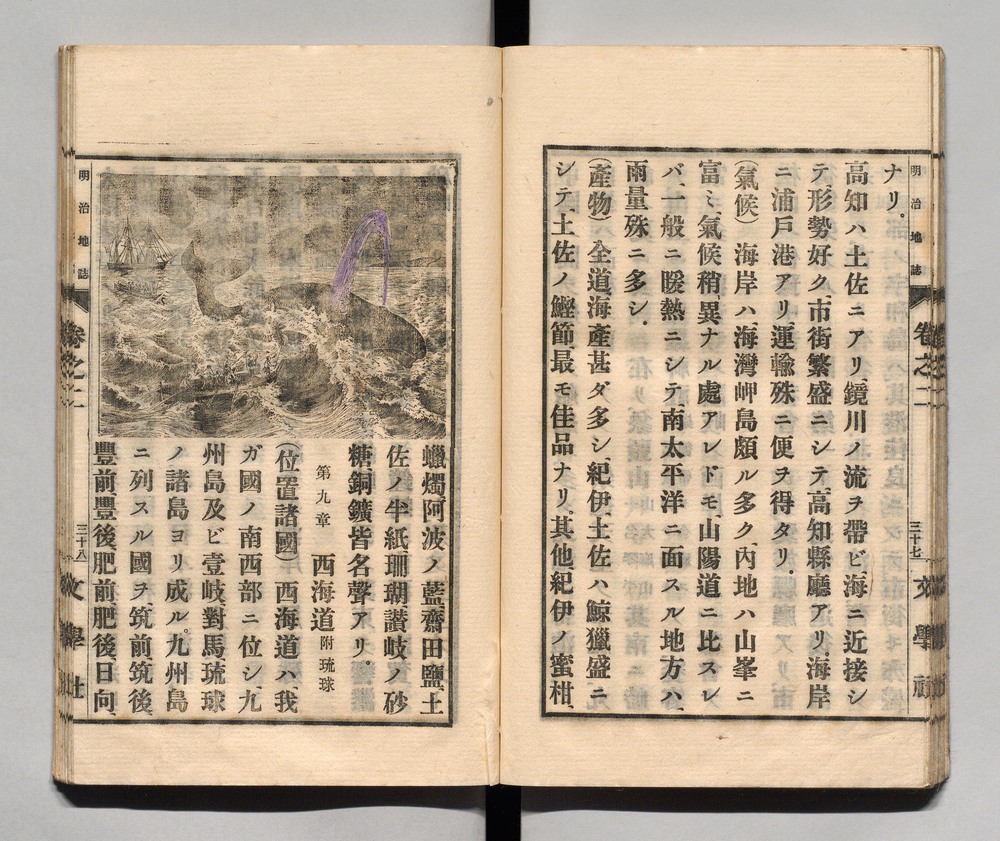 明治地誌 卷之二 三十七 文學社
ナリ。
高知ハ土佐ニアリ、鏡川ノ流ヲ帶ビ、海ニ近接シ
テ、形勢好ク、市街繁盛ニシテ、高知縣廳アリ、海岸
ニ浦戸港アリ、運輸殊ニ便ヲ得タリ。
(氣候) 海岸ハ、海灣岬島頗ル多ク、內地ハ山峯ニ
富ミ、氣候稍異ナル處アレドモ、山陽道ニ比スレ
バ、一般ニ暖熱ニシテ、南太平洋ニ面スル地方ハ、
雨量殊ニ多シ。
(產物) 全道海產甚ダ多シ、紀伊土佐ハ鯨獵盛ニ
シテ、土佐ノ鰹節、最モ佳品ナリ、其他紀伊ノ蜜柑、
蠟燭、阿波ノ藍、齋田鹽、土
佐ノ半紙、珊瑚、讃岐ノ砂
糖、銅鑛、皆名聲アリ。
第九章 西海道 附琉球
(位置諸國) 西海道ハ、我
ガ國ノ南西部ニ位シ、九
州島及ビ壹岐對馬琉球
ノ諸島ヨリ成ル。九州島
ニ列スル國ヲ、筑前筑後、
豐前、豐後、肥前、肥後、日向、
明治地誌 卷之二 三十八 文學社